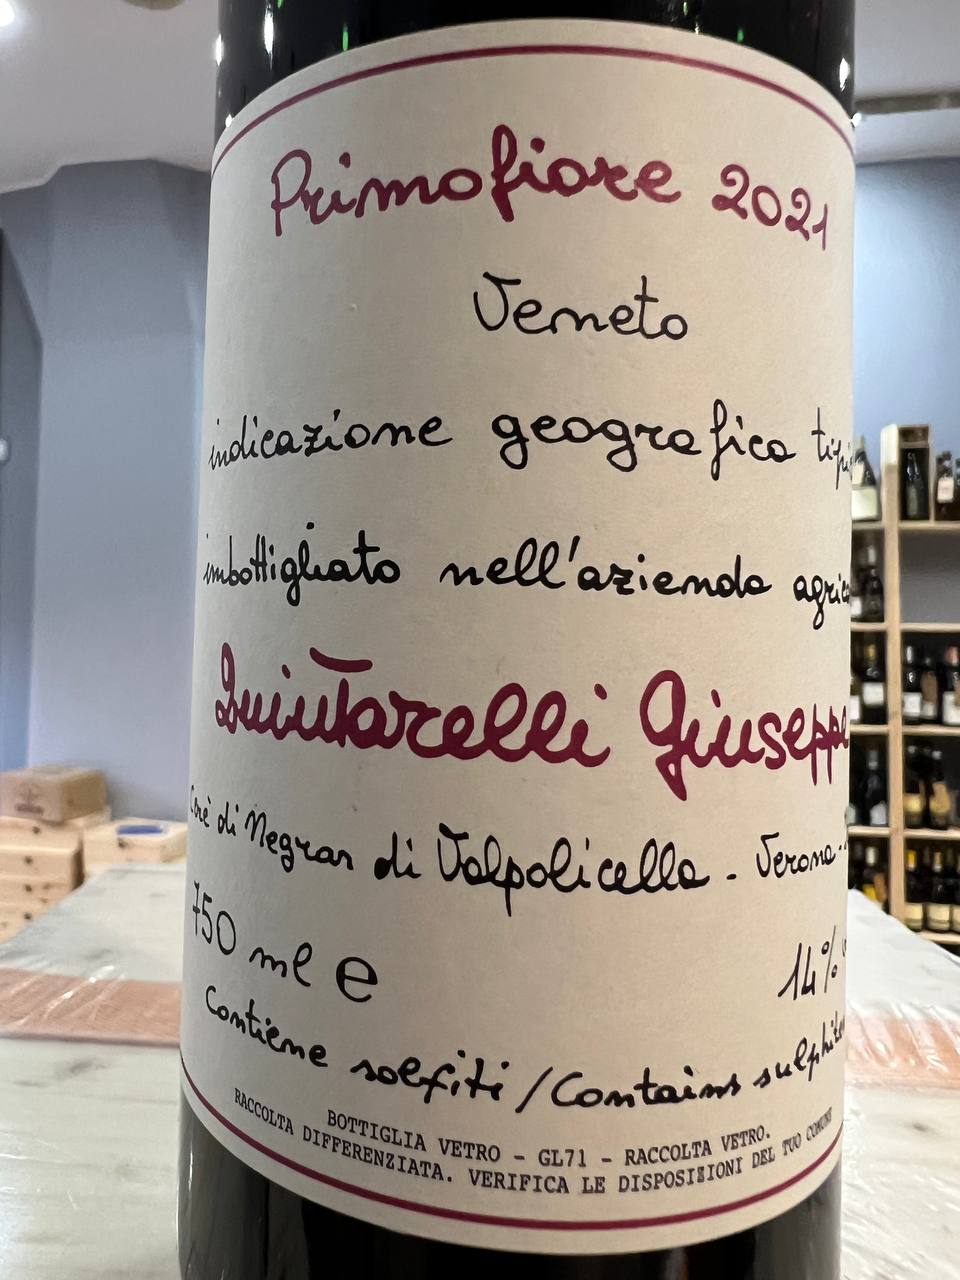 Primofiore 2021
Veneto
indicazione geografica
imbottigliato nell'azienda
Quintarelli Giuseppe
Cerè di Negrar di Valpolicella - Verona -
750 ml e
14%
Contiene solfiti / Contains
BOTTIGLIA VETRO - GL71 - RACCOLTA VETRO.
RACCOLTA DIFFERENZIATA. VERIFICA LE DISPOSIZIONI DEL TUO COMUNE